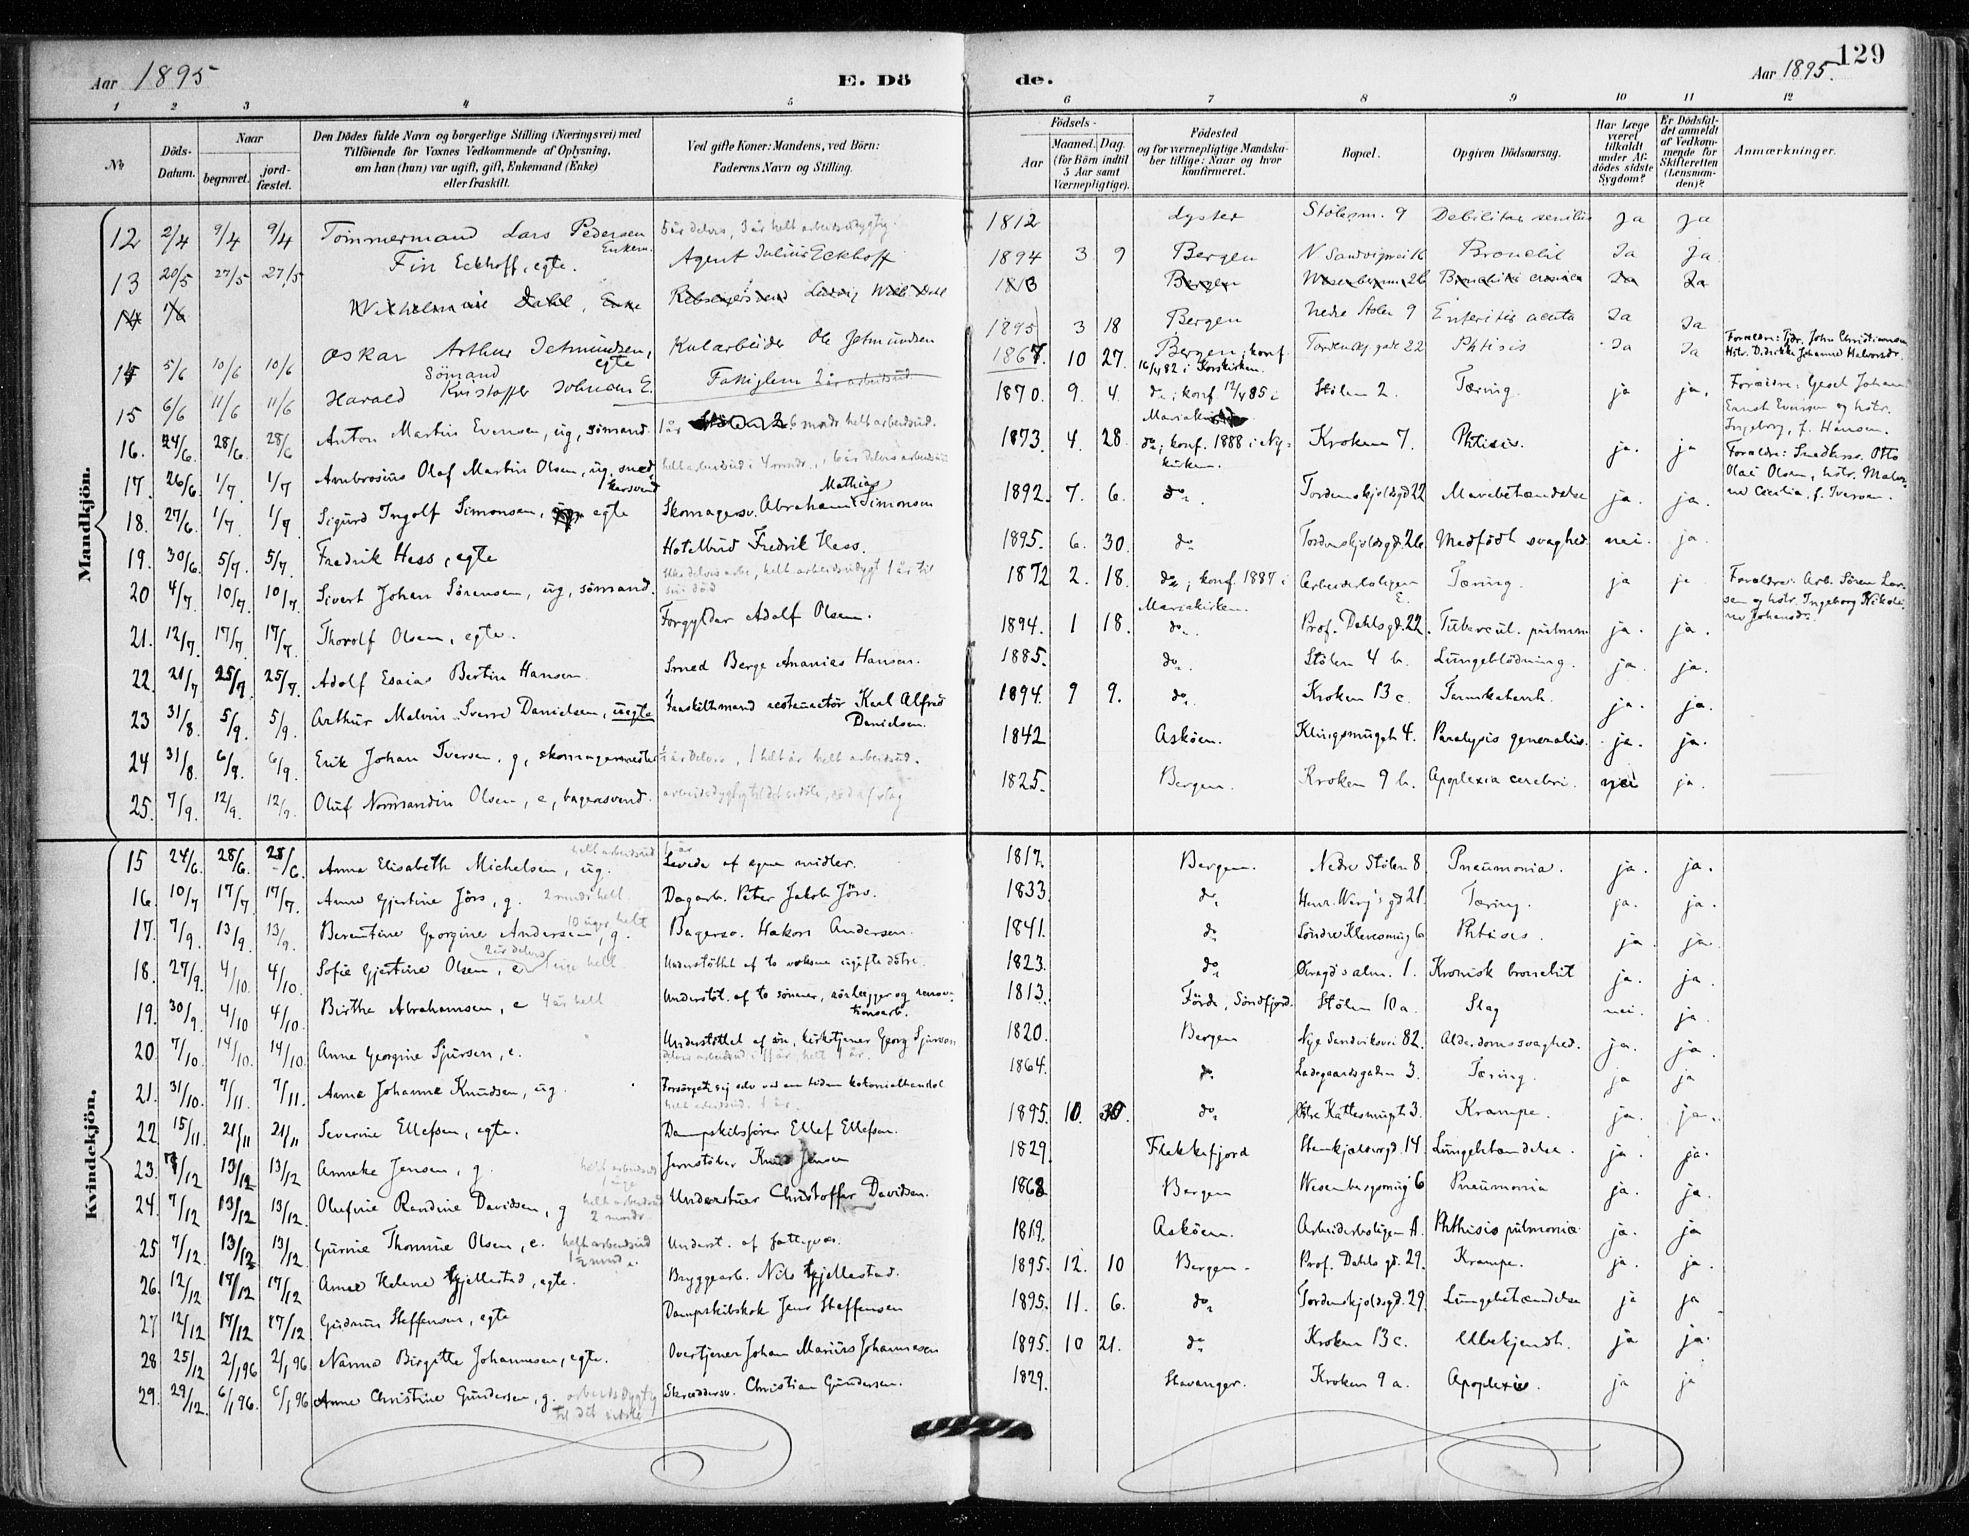 Aar 1895 E. Dö
de. Aar 1895. 129
1 2 3 4 5 6 7 8 9 10 11 12
No
Döds-Datum.
Naar
begravet.
jord-fæstet.
Den Dödes fulde Navn og borgerlige Stilling (Næringsvei) med
Tilföiende for Voxnes Vedkommende af Oplysning,
om han (hun) var ugift, gift, Enkemand (Enke)
eller fraskilt.
Ved gifte Koner: Mandens, ved Börn:
Faderens Navn og Stilling.
Födsels-
Aar
Maaned. Dag.
(for Börn indtil
5 Aar samt
Værnepligtige).
Födested
og for værnepligtige Mandska-
ber tillige: Naar og hvor
konfirmeret.
Bopæl.
Opgiven Dödsaarsag.
Har Læge
været
tilkaldt
under Af-
dödes sidste
Sygdom?
Er Dödsfal-
det anmeldt
af Vedkom-
mende for
Skifteretten
(Lensman-
den)?
Anmærkninger.
Mandkjön.
12 2/4 9/4 9/4 Tömmermand Lars Pedersen Enkem. 5 år delvis, 3 år helt arbeidsudygtig. 1812 Lyster Stölesm. 9 Debilitas senilis Ja Ja
13 20/5 27/5 27/5 Fin Eckhoff, egte. Agent Julius Eckhoff 1894 3 9 Bergen N Sandvigvei 16 Bronchit Ja Ja
14 1/6 Wilhelmine Dahl, Enke Bergen Ja Ja
14 5/6 10/6 10/6 Oskar Arthur Jetmundsen, egte Kularbeider Ole Jetmundsen 1895 3 18 Bergen Nedre Stölen 9 Enteritis acuta Ja Ja
15 6/6 11/6 11/6 Sömand Harald Kristoffer Johnsen E. 1867 10 27 Bergen; konf. 16/4 82 i Korskirken. Tordenskj gade 22 Phtisis Ja Ja
16. 24/6. 28/6. 28/6 Anton Martin Evensen, ug, sömand. 1 år 6 mndr helt arbeidsud. 1870. 9. 4. do; konf. 12/4 85 i Mariakirken Stölen 2. Tæring. ja ja. Forældre: Gesel Johan
Ernst Evensen og hstr.
Ingeborg, f. Hansen.
17. 26/6. 1/7. 1/7 Ambrosius Olaf Martin Olsen, ug. smed 1873. 4. 28. do; konf. 1888 i Ny-
kirken. Kroken 7. Phtisis. ja. ja Forældre: Smedksv. Otto
Olai Olsen, hstr.
18. 27/6. 1/7. 1/7 Sigurd Ingolf Simonsen, egte Skomagersv. Abraham Mathias Simonsen 1892. 7. 6. do. Tordenskjoldsgd 22 Mavebetændelse ja. ja.
19. 30/6. 5/7. 5/7. Fredrik Hess, egte Hotelbud Fredrik Hess. 1895. 6. 30. do Tordenskjoldsgd. 26 Medfödt svaghed nei. ja.
20 4/7. 10/7. 10/7. Sivert Johan Sörensen, ug, sömand. 1872 2. 18. do; konf. 1887 i
Mariakirken. Arbeiderboligen E. Tæring. ja ja Forældre: Arb. Sören Lar-
sen og hstr. Ingeborg Nikoli-
ne Johansdr.
21. 12/7. 17/7. 17/7. Thorolf Olsen, egte. Forgylder Adolf Olsen. 1894. 1 18. do. Prof. Dahls gd. 22. Tubercul. pulmon ja. ja.
22. 21/7 25/7. 25/7. Adolf Esaias Bertin Hansen. Smed Berge Ananias Hansen. 1885. do. Stölen 4 b. Lungeblödning. ja. ja.
23 31/8. 5/9. 5/9. Arthur Malvin Sverre Danielsen, uegte Fraskilt mand restauratör Karl Alfred
Danielsen. 1894. 9 9. do. Kroken 13 c. Tarmkatarrh. ja. ja.
24 31/8. 6/9. 6/9. Erik Johan Iversen, g, skomagermester ½ år delvis, 1 helt år helt arbeidsud. 1842 Asköen. Klingesmugets 4. Paralysis generalis. ja. ja.
25. 7/9. 12/9. 12/9. Oluf Normandin Olsen, e, bagersvend. arbeidsdygtig til det sidste, död af slag 1825. Bergen. Kroken 9 b. Apoplexia cerebri. nei ja.
Kvindekjön.
15 24/6. 28/6. 28/6. Anna Elisabeth Michelsen, ug. helt arbeidsud 1 år Levede af egne midler. 1817. Bergen. Nedre Stölen 8 Pneumonia. ja. ja.
16. 10/7 17/7 17/7. Anne Gjertine Jörs, g. 2 mndr helt Dagarb. Peter Jakob Jörs. 1833. do. Henr. Wergs gd 21. Tæring. ja. ja.
17. 7/9. 13/9. 13/9. Berentine Georgine Andersen, g. 10 uger helt Bagersv. Hakon Andersen. 1841. do Söndre Klevesmug 6 Phtisis. ja. ja.
18. 27/9. 4/10. 4/10. Sofie Gjertine Olsen, e 2 år delvis 1 uge helt Understöttet af to voksne ugifte dötre. 1823. do Öregd's alm. 1. Kronisk bronchit ja. ja.
19. 30/9. 4/10 4/10 Birthe Abrahamsen, e 4 år helt Understöt. af to sönner, rörlægger og renova-
tionsarb. 1813. Förde, Söndfjord. Stölen 10 a. Slag nei. ja.
20 7/10. 14/10. 14/10. Anne Georgine Sjursen, e. Understöttet af sön, kirketjener Georg Sjursen 1820. Bergen Nye Sandviksvei 82. Alderdomssvaghed. ja. ja.
21. 31/10. 7/11. 7/11. Anna Johanna Knudsen, ug. Forsörget sig selv ved en liden kolonialhandel helt arbeidsud. 1 år. 1864. do Ladegaardsgaden 3. Tæring. ja ja
22. 15/11. 21/11 21/11 Severine Ellefsen, egte. Dampskibsförer Ellef Ellefsen. 1895. 10. 30. do. Östre Kattesmugts 3. Krampe. ja. ja.
23. 7/12 13/12 13/12 Anneke Jensen, g. helt arbeidsud 1 uge Jernstöber Knud Jensen 1829. Flekkefjord Steenkjeldersgd. 14 Lungebetændelse. ja. ja.
24. 7/12 13/12 13/12. Olufine Randine Davidsen, g helt arbeidsud 2 mndr. Understuer Christoffer Davidsen. 1862 Bergen Wesenbergsmug 6 Pneumonia ja. ja.
25 7/12 13/12 13/12. Gurine Thomine Olsen, e. helt arbeidsud Underst. af fattigvæs. 1819. Asköen. Arbeiderboligen A. Phthisis pulmonia ja. ja
26. 12/12 17/12 17/12 Anne Helene Gjellestad, egte. Bryggearb. Nils Gjellestad. 1895. 12. 10 Bergen. Prof. Dahls gd. 29. Krampe. ja. ja.
27 12/12 17/12 17/12 Gudrun Steffensen, egte Dampskibskok Jens Steffensen 1895. 11. 6. do. Tordenskjoldsgd. 29. Lungebetændelse ja ja
28 25/12 2/1 96 2/1 96 Nanna Birgitte Johannesen, egte. Overtjener Johan Marius Johannesen 1895. 10 21. do Kroken 13 c. Ubekjendt. ja ja.
29. 29/12. 6/1 96. 6/1 96 Anne Christine Gundersen, g. arbeidsdygtig til det sidste Skræddersv. Christian Gundersen. 1829. Stavanger. Kroken 9 a. Apoplexie. ja ja